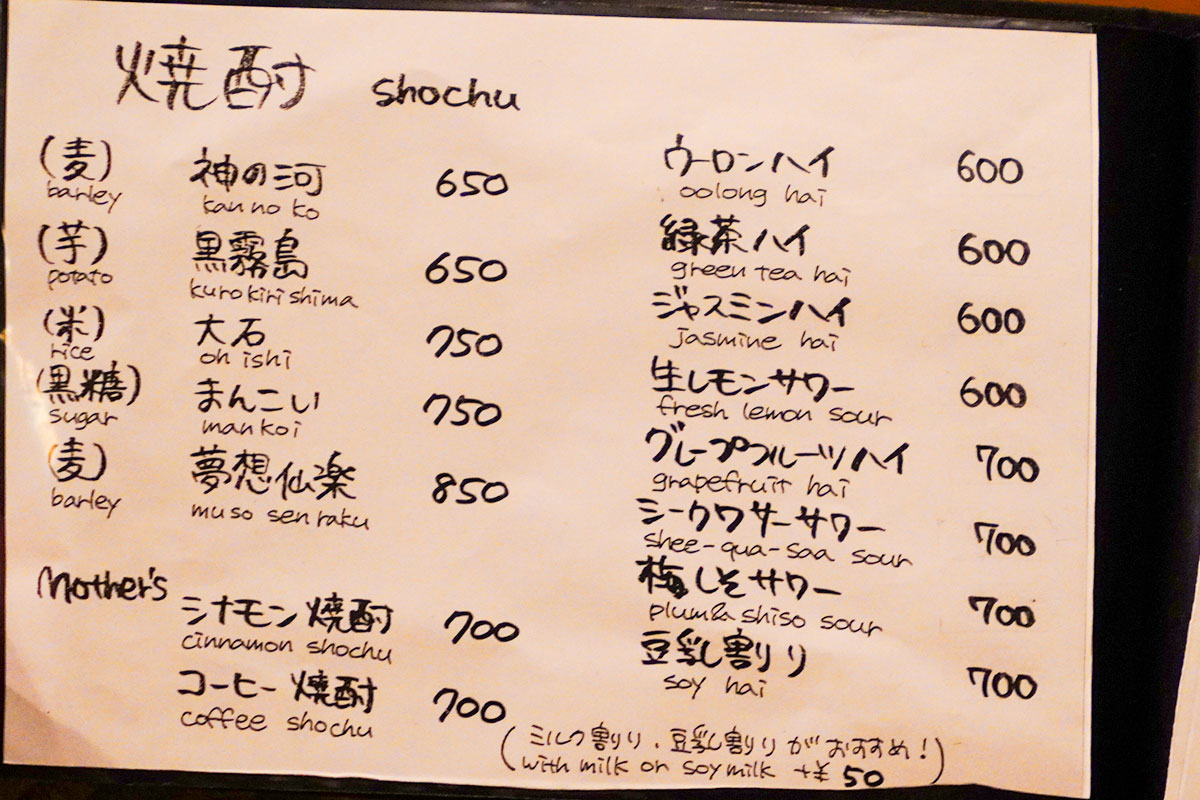 焼酎 shochu
(麦) 神の河 650
barley kan no ko
(芋) 黒霧島 650
potato kurokirishima
(米) 大石 750
rice oh ishi
(黒糖) まんこい 750
sugar mankoi
(麦) 夢想仙楽 850
barley muso senraku
Mother's
シナモン焼酎 700
cinnamon shochu
コーヒー焼酎 700
coffee shochu
ウーロンハイ 600
oolong hai
緑茶ハイ 600
green tea hai
ジャスミンハイ 600
jasmine hai
生レモンサワー 600
fresh lemon sour
グレープフルーツハイ 700
grapefruit hai
シークワサーサワー 700
shee-qua-saa sour
梅しそサワー 700
plum&shiso sour
豆乳割り 700
soy hai
(ミルク割り、豆乳割りがおすすめ!)
with milk or soymilk +¥50